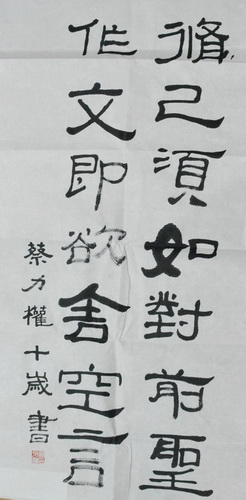 脩己須如對前聖
作文即欲舍空言
蔡力權十歲書